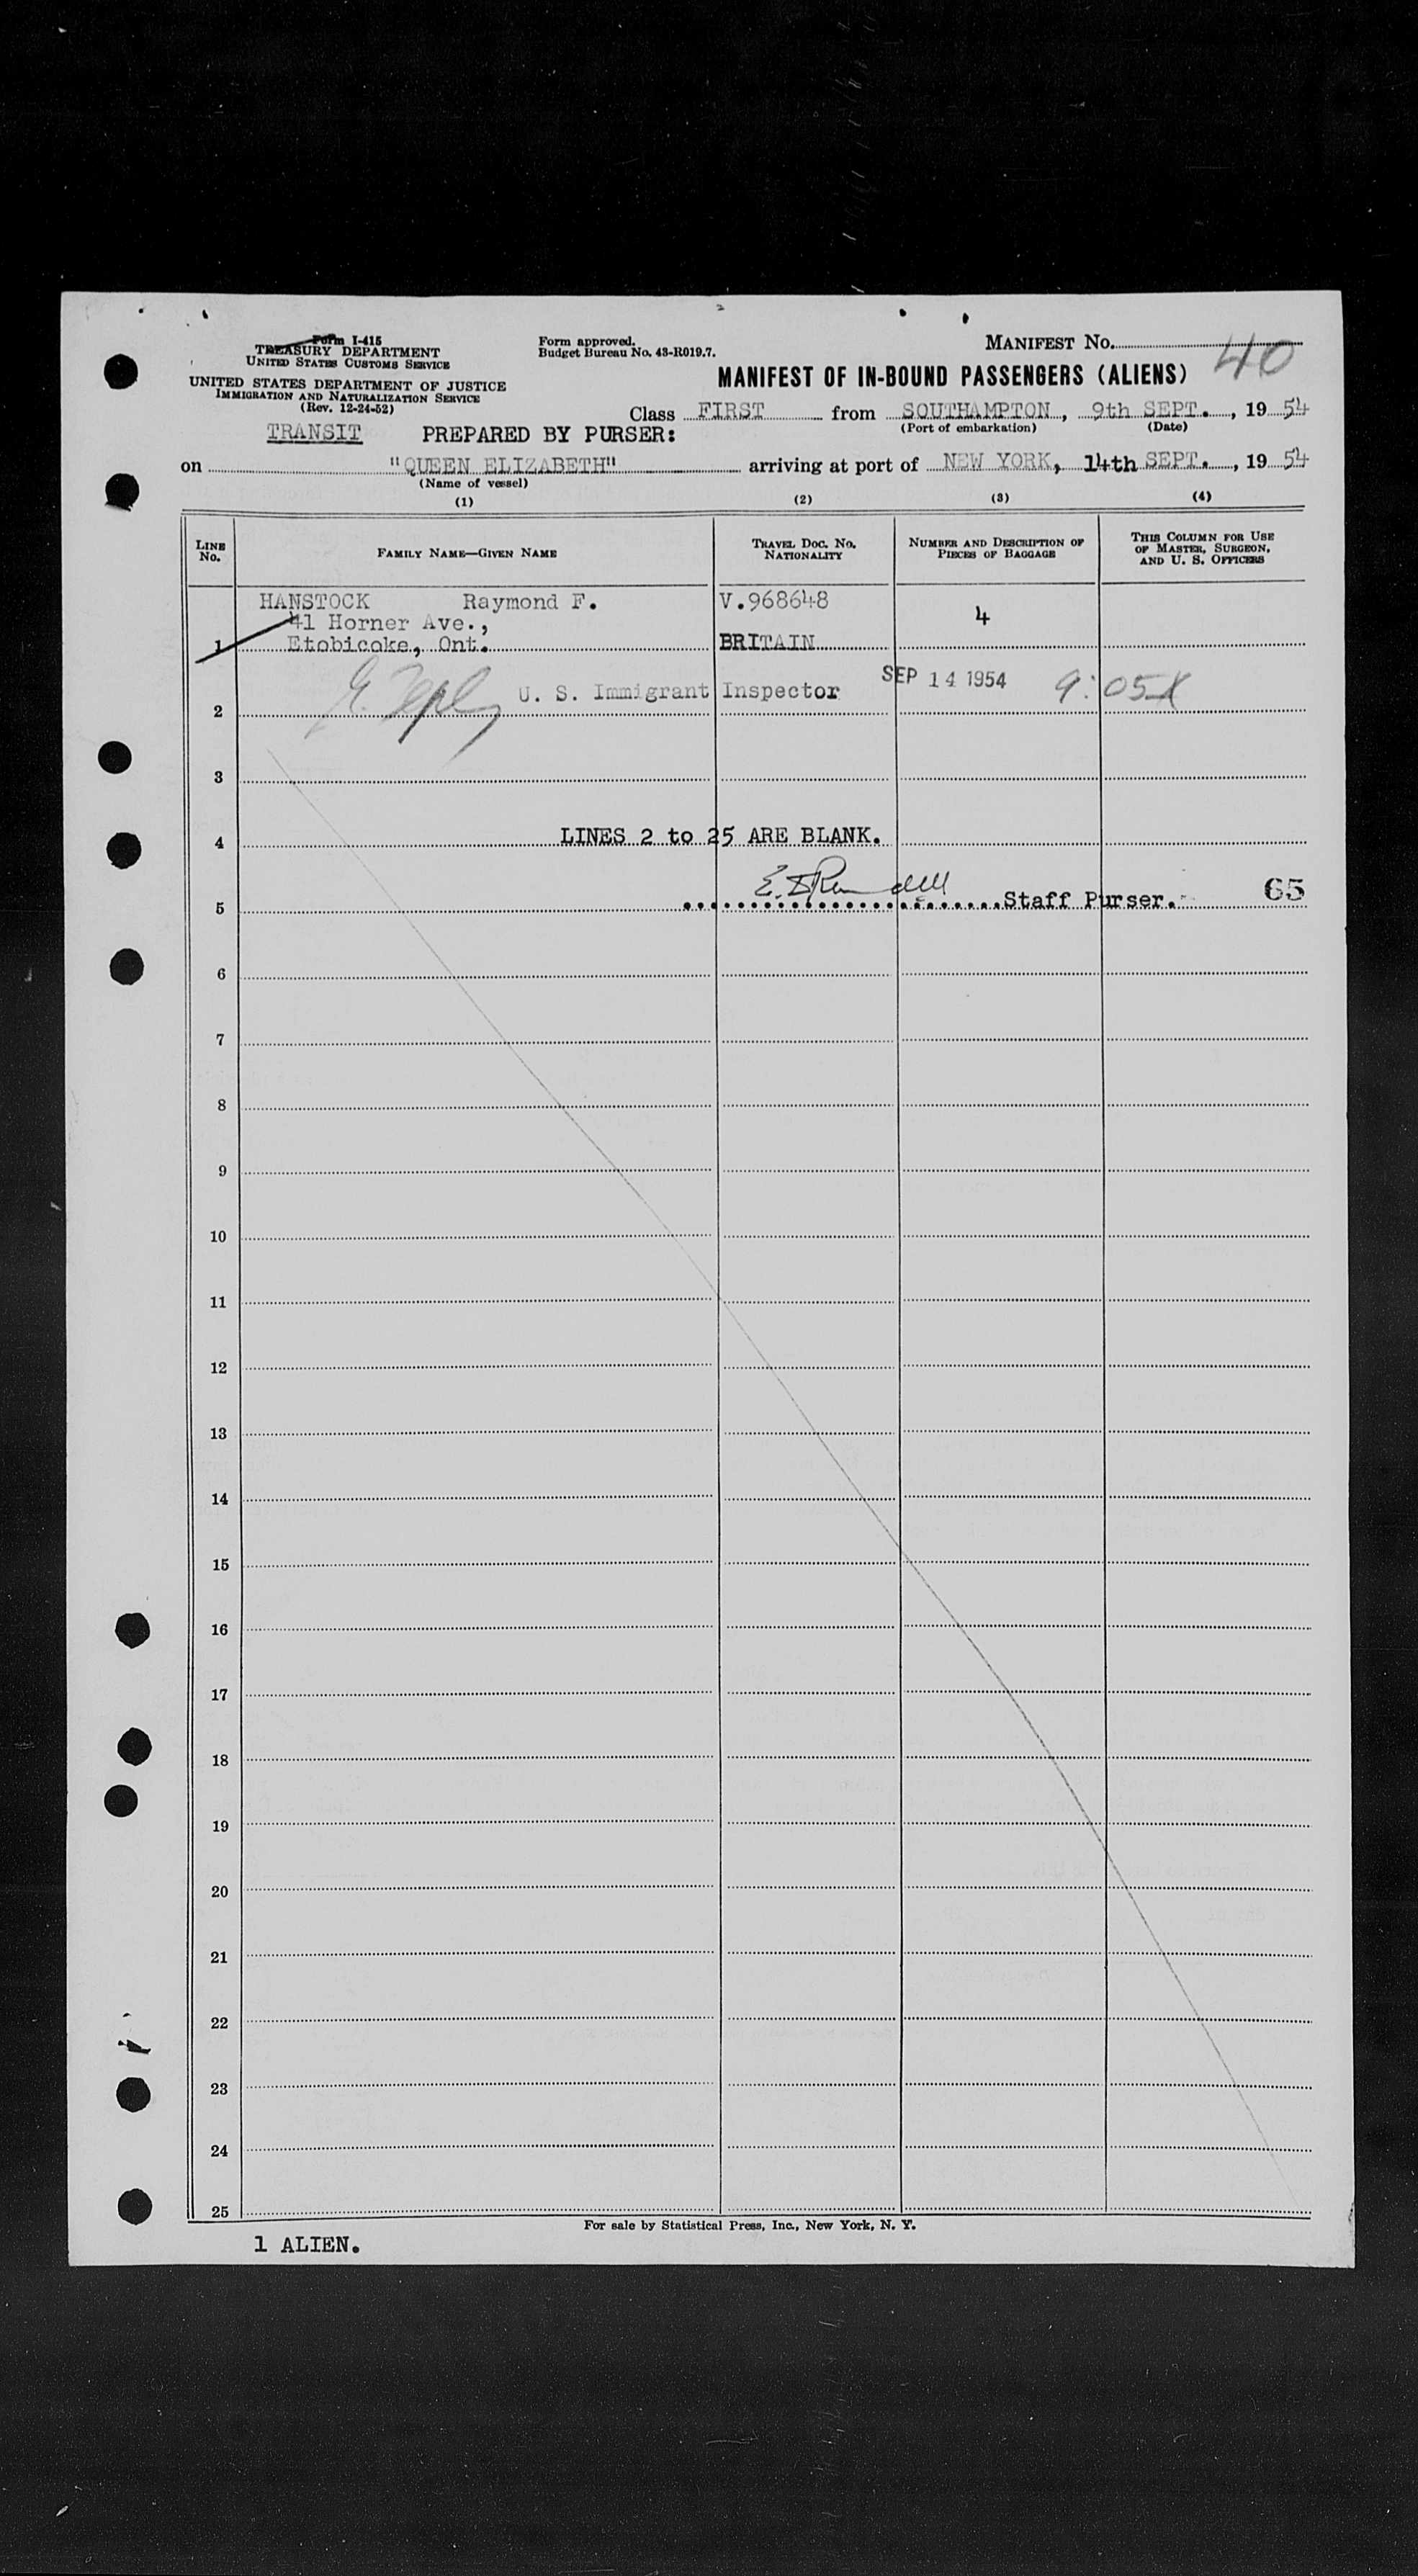 Form I-415
TREASURY DEPARTMENT
UNITED STATES CUSTOMS SERVICE
UNITED STATES DEPARTMENT OF JUSTICE
IMMIGRATION AND NATURALIZATION SERVICE
(Rev. 12-24-52)
Form approved.
Budget Bureau No. 43-R019.7.
MANIFEST No. 40
MANIFEST OF IN-BOUND PASSENGERS (ALIENS)
Class FIRST from SOUTHAMPTON, 9th SEPT., 1954
(Port of embarkation) (Date)
TRANSIT PREPARED BY PURSER:
on "QUEEN ELIZABETH" arriving at port of NEW YORK, 14th SEPT., 1954
(Name of vessel)
(1) (2) (3) (4)
LINE No. FAMILY NAME—GIVEN NAME TRAVEL DOC. No. NATIONALITY NUMBER AND DESCRIPTION OF PIECES OF BAGGAGE THIS COLUMN FOR USE OF MASTER, SURGEON, AND U. S. OFFICERS
HANSTOCK Raymond F. V.968648
41 Horner Ave., 4
1 Etobicoke, Ont. BRITAIN
U. S. Immigrant Inspector SEP 14 1954 9:05
2
3
4 LINES 2 to 25 ARE BLANK.
5 Staff Purser. 65
6
7
8
9
10
11
12
13
14
15
16
17
18
19
20
21
22
23
24
25
For sale by Statistical Press, Inc., New York, N. Y.
1 ALIEN.